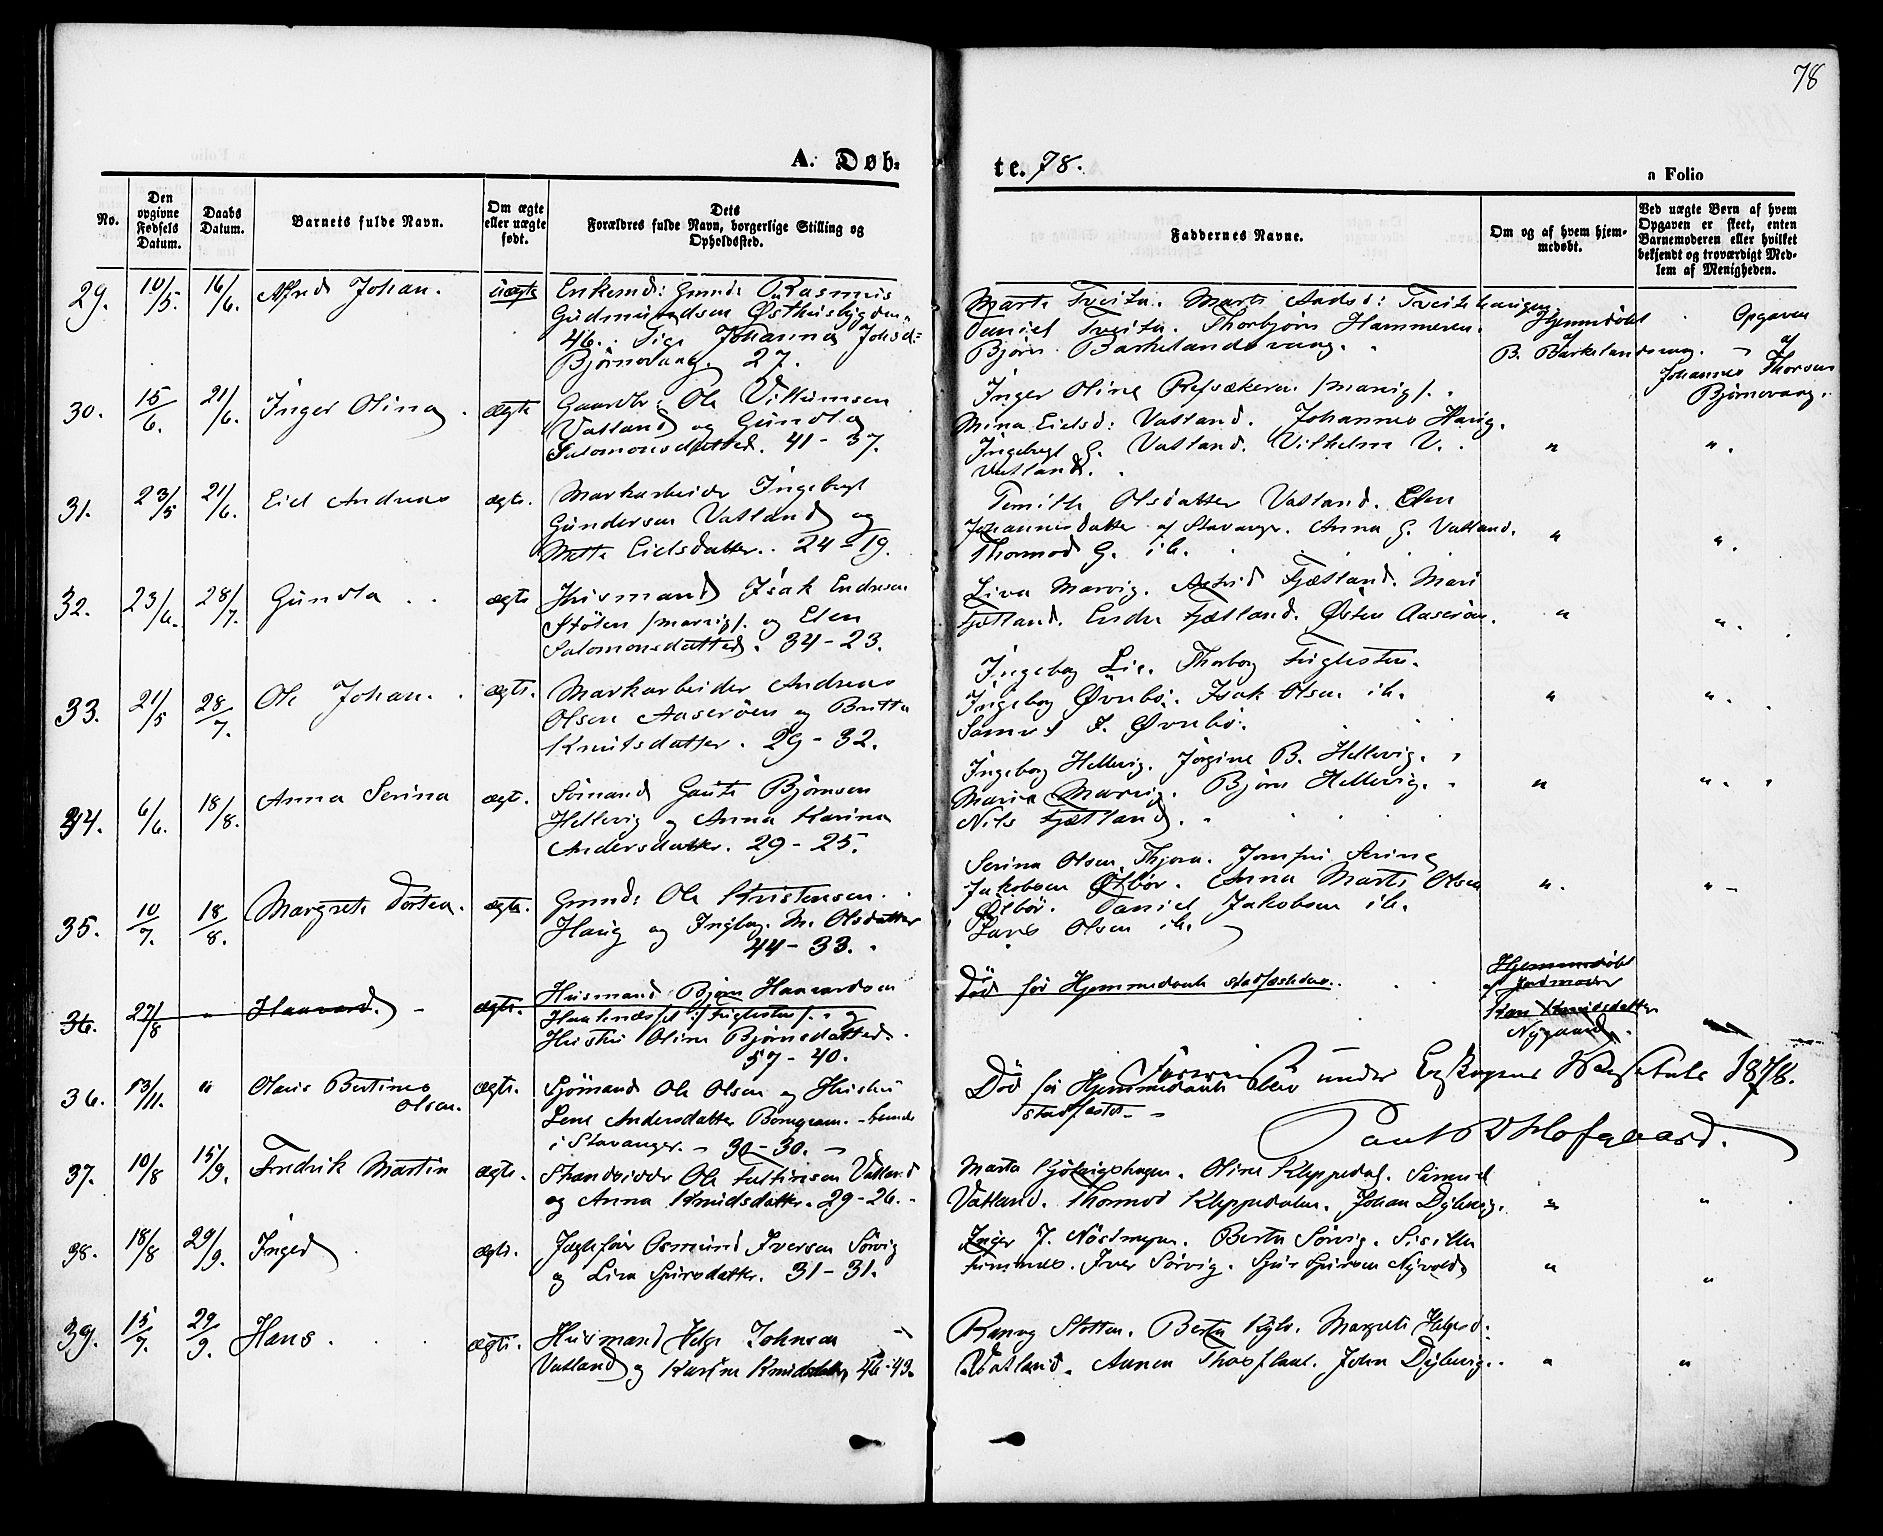 78
A. Døb-
te. 78.
a Folio
No.
Den opgivne Fødsels Datum.
Daabs Datum.
Barnets fulde Navn.
Om ægte eller uægte født.
Dets Forældres fulde Navn, borgerlige Stilling og Opholdssted.
Faddernes Navne.
Om og af hvem hjemmedøbt.
Ved uægte Børn af hvem Opgaven er skeet, enten Barnemoderen eller hvilket bekjendt og troværdigt Medlem af Menigheden.
29. 10/5. 16/6. Alfred Johan. uægte Enkemd: Gmd: Rasmus
Gudmundsen Østhusbygden
46. Pige Johanna Johsd=
Bjørnevaag. 27.
Marta Tveita. Marta Andsd: Tveithaugen
Daniel Tveita. Thorbjørn Hammeren.
Bjørn Barkelandsvaag.
Hjemmdøbt
af
B. Barkelandsvaag.
Opgaven
af
Johannes Thorsen
Bjørnevaag.
30. 15/6. 21/6. Inger Olina. ægte Gaardbr: Ole Villumsen
Vatland og Gundla
Salomonsdatter. 41 - 37.
Inger Oline Refsækern /marvig/.
Mina Eielsd: Vatland. Johannes Haug.
Ingebregt G. Vatland. Vilhelm V.
Vatland.
" "
31. 23/5 21/6. Eiel Andreas ægte. Markarbeider Ingebregt
Gundersen Vatland og
Mette Eielsdatter. 24 - 19.
Olsdatter Vatland. Elen
Johannesdatter af Stavanger. Anna G. Vatland.
Thormod G. ib.
" "
32. 23/6. 28/7. Gundla ægte Husmand Isak Endresen
Støten /marvig/. og Elen
Salomonsdatter. 34 - 23.
Liva Marvig. Astrid Fjætland. Mari
Fjætland. Endre Fjætland. Østen Aaserøen.
" "
33. 21/5 28/7. Ole Johan. ægte. Markarbeider Andreas
Olsen Aaserøen og Britta
Knutsdatter. 29 - 32.
Ingeborg Lie. Thorborg Fuglesten.
Ingeborg Øvrebø. Isak Olsen ib.
Samuel I. Øvrebø.
" "
34. 6/6. 18/8. Anna Serina ægte. Sømand Gaute Bjørnsen
Hellevig og Anna Karina
Andersdatter. 29 - 25.
Ingeborg Hellevig. Jørgine B. Hellevig.
Maria Marvig. Bjørn Hellevig.
Nils Fjætland.
" "
35. 10/7. 18/8. Margrete Dortea. ægte. Gmd: Ole Kristensen
Haug og Ingbog. M. Olsdatter
44 - 33.
Serina Olsen Thjora. Jomfru Serine
Jakobsen Østbør. Anna Marta Olsen
Østbør. Daniel Jakobsen ib.
Lars Olsen ib.
" "
36. 27/8 " Haavard. ægte. Husmand Bjørn Haavardsen
/: Fuglesten /. og
Hustru Oline Bjørnsdatter.
57 - 40.
Død før Hjemmedaaben stadfæstedes.
Hjemmedøbt
af Jordmoder
Karn Knudsdatter
Nygaard.
36. 13/11. " Olaus Bertines
Olsen.
ægte. Sjømand Ole Olsen og Hustru
Lene Andersdatter hende
i Stavanger. 30 - 30.
Død før Hjemmedaaben blev
stadfæstet.
Foreviist under Biskopens Visitats 1878.
Hofgaard.
37. 10/8 15/9. Fredrik Martin ægte. Strandsidder Ole Vatland
og Anna Knudsdatter. 29 - 26.
Marta Oline Kleppedal. Simuel
Vatland. Thormod Kleppedalen. Johan Dybevig.
" "
38. 18/8 29/9. Inger ægte. Jægtefører Osmund Iversen Sørvig
og Liva Sjursdatter. 31 - 31.
Inger J. Nøstmyra. Berta Sørvig. Sisilla
Iver Sørvig. Sjur Sjursen Nyvold
" "
39. 15/7. 29/9. Hans. ægte. Husmand Helge Johnsen
Vatland og Karine Knudsdatter 46 - 43.
Ranvog Støtten. Berta Margrete Helgesd:
Vatland. John Dybevig.
" "